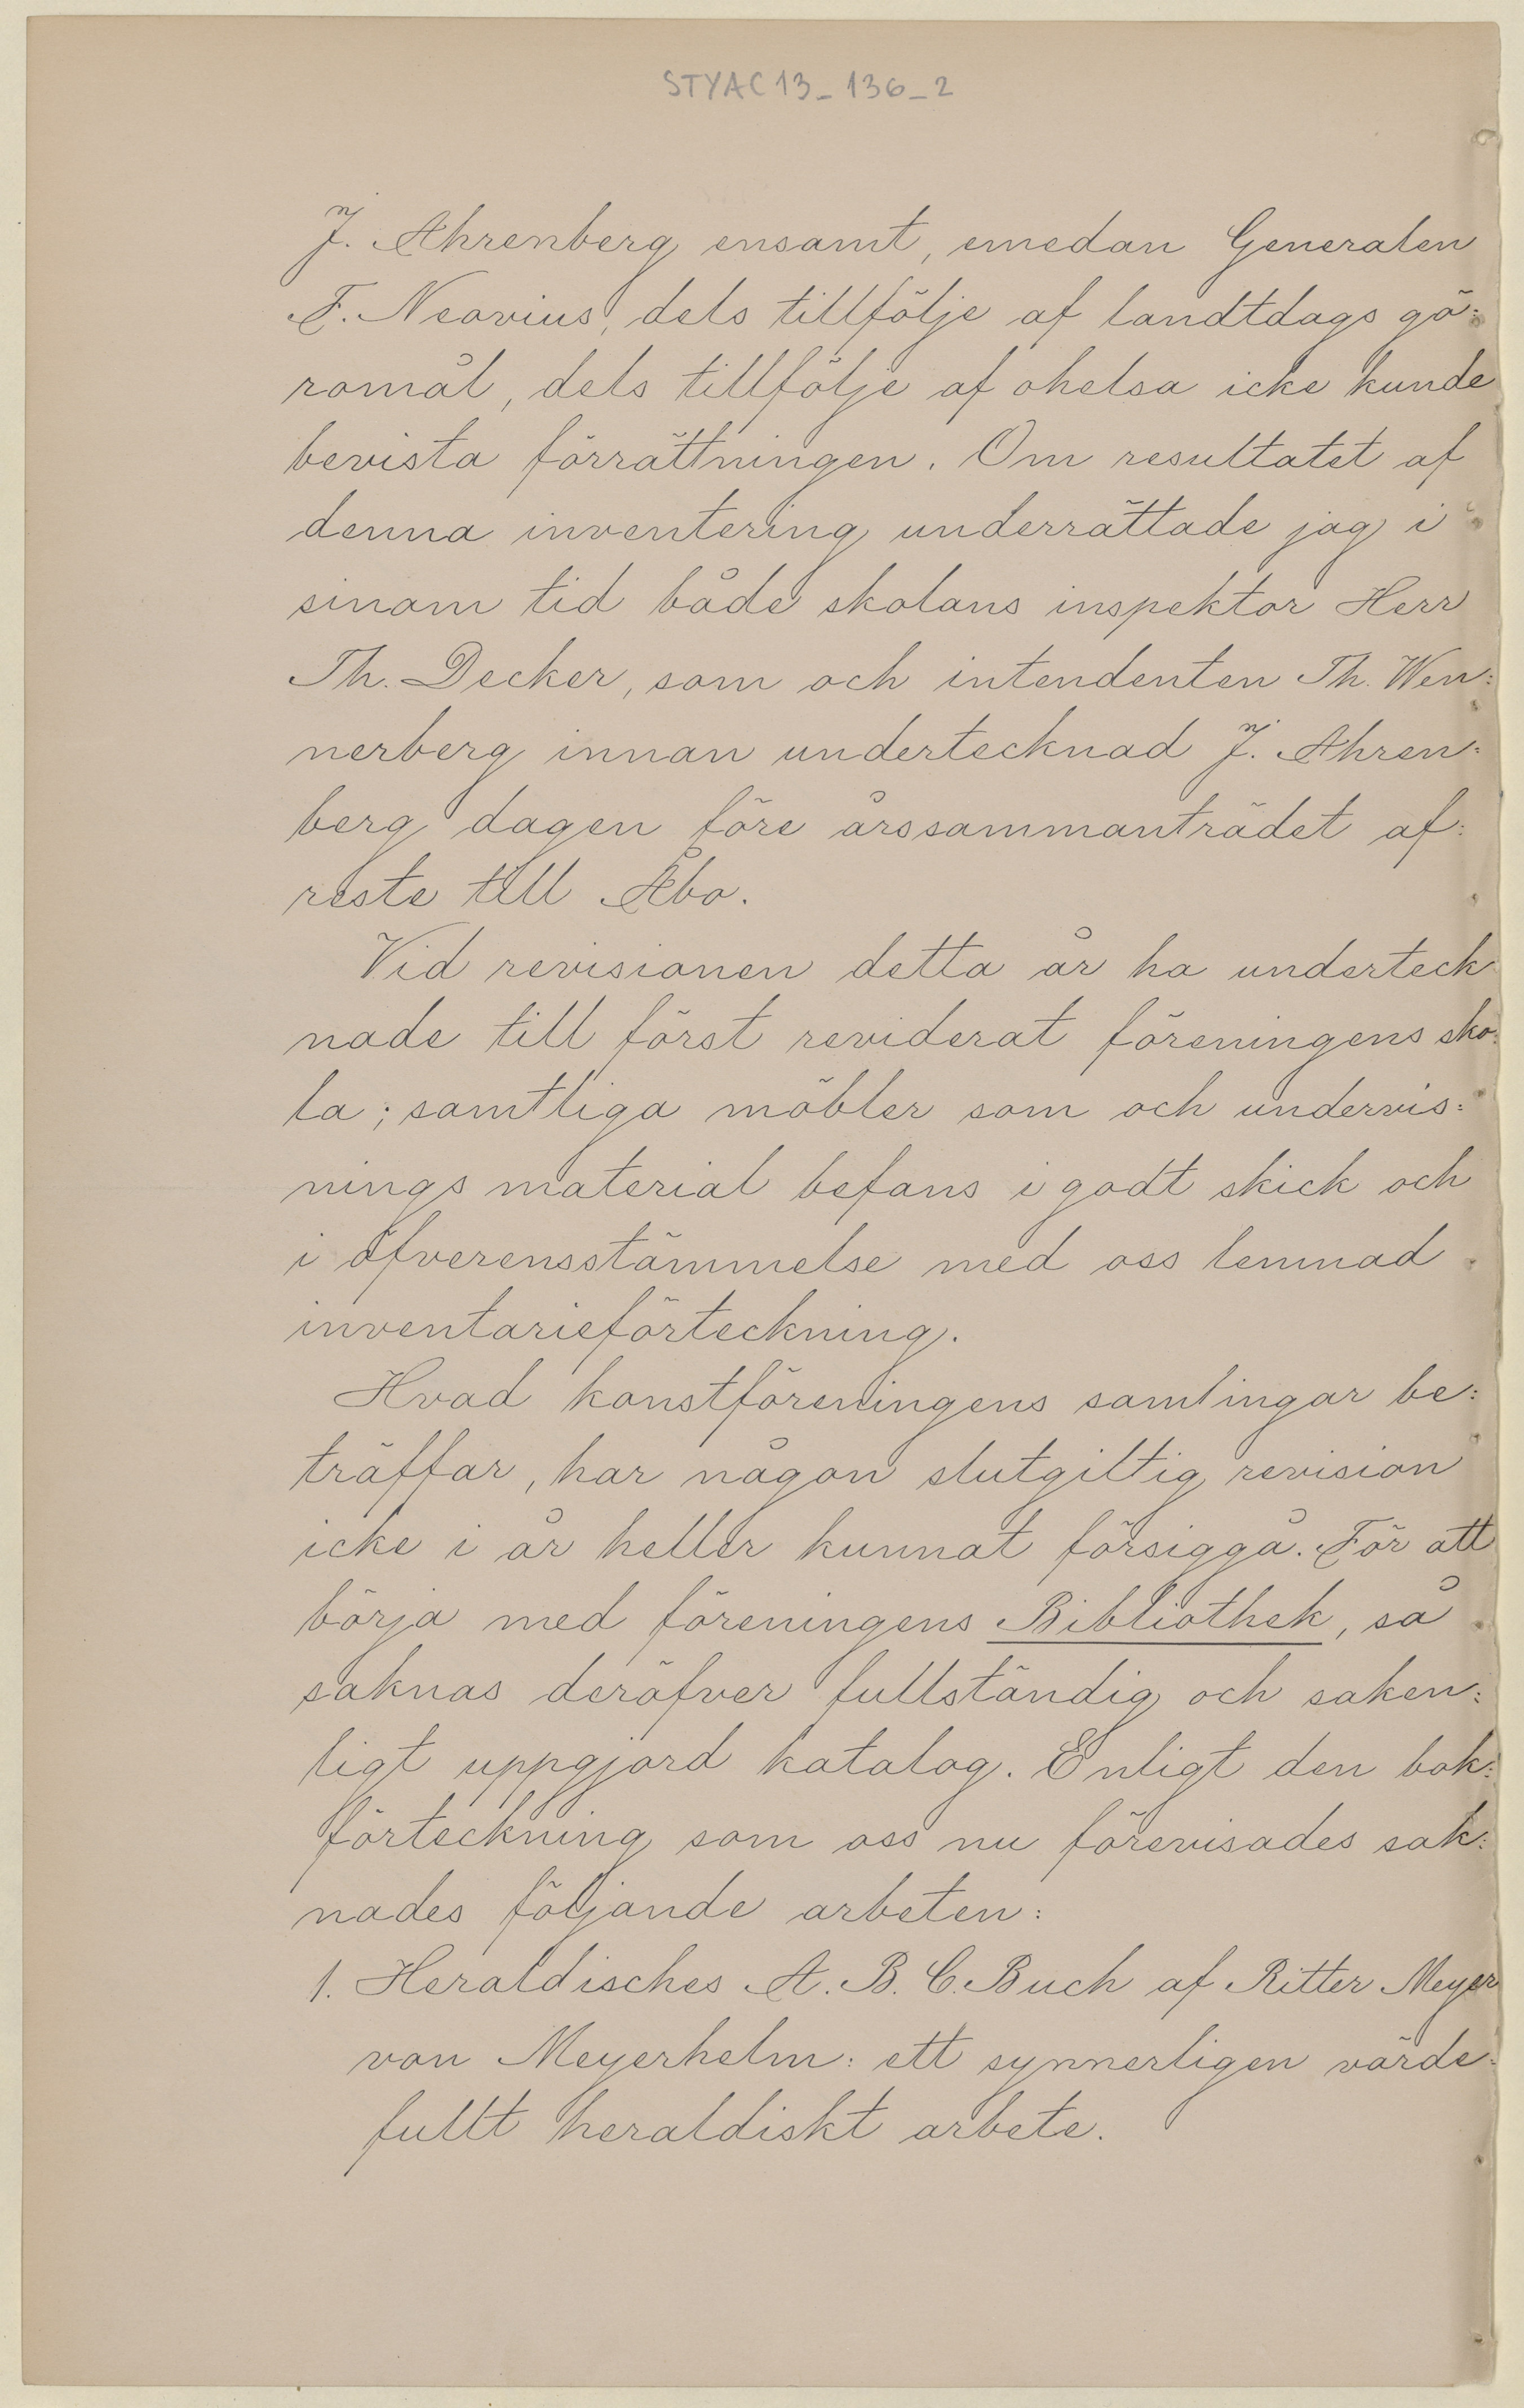 STYAC13_136_2
J. Ahrenberg ensamt, emedan Generalen
F. Neovius, dels tillfölje af landtdags gö:
romål, dels tillfölje af ohelsa icke kunde
bevista förrättningen. Om resultatet af
denna inventering underrättade jag i
sinom tid både skolans inspektor Herr
Th. Decker, som och intendenten Th. Wen:
nerberg innan undertecknad J. Ahren:
berg dagen före årssammanträdet af:
reste till Åbo.
Vid revisionen detta år ha underteck
nade till först reviderat föreningens sko:
la; samtliga möbler som och undervis:
nings material befans i godt skick och
i öfverensstämmelse med oss lemnad
inventarieförteckning.
Hvad konstföreningens samlingar be:
träffar, har någon slutgiltig revision
icke i år heller kunnat försiggå. För att
börja med föreningens Bibliothek, så
saknas deröfver fullständig och saken:
ligt uppgjord katalog. Enligt den bok:
förteckning som oss nu förevisades sak:
nades följande arbeten:
1. Heraldisches A. B. C. Buch af Ritter Meyer
von Meyerhelm: ett synnerligen värde:
fullt heraldiskt arbete.